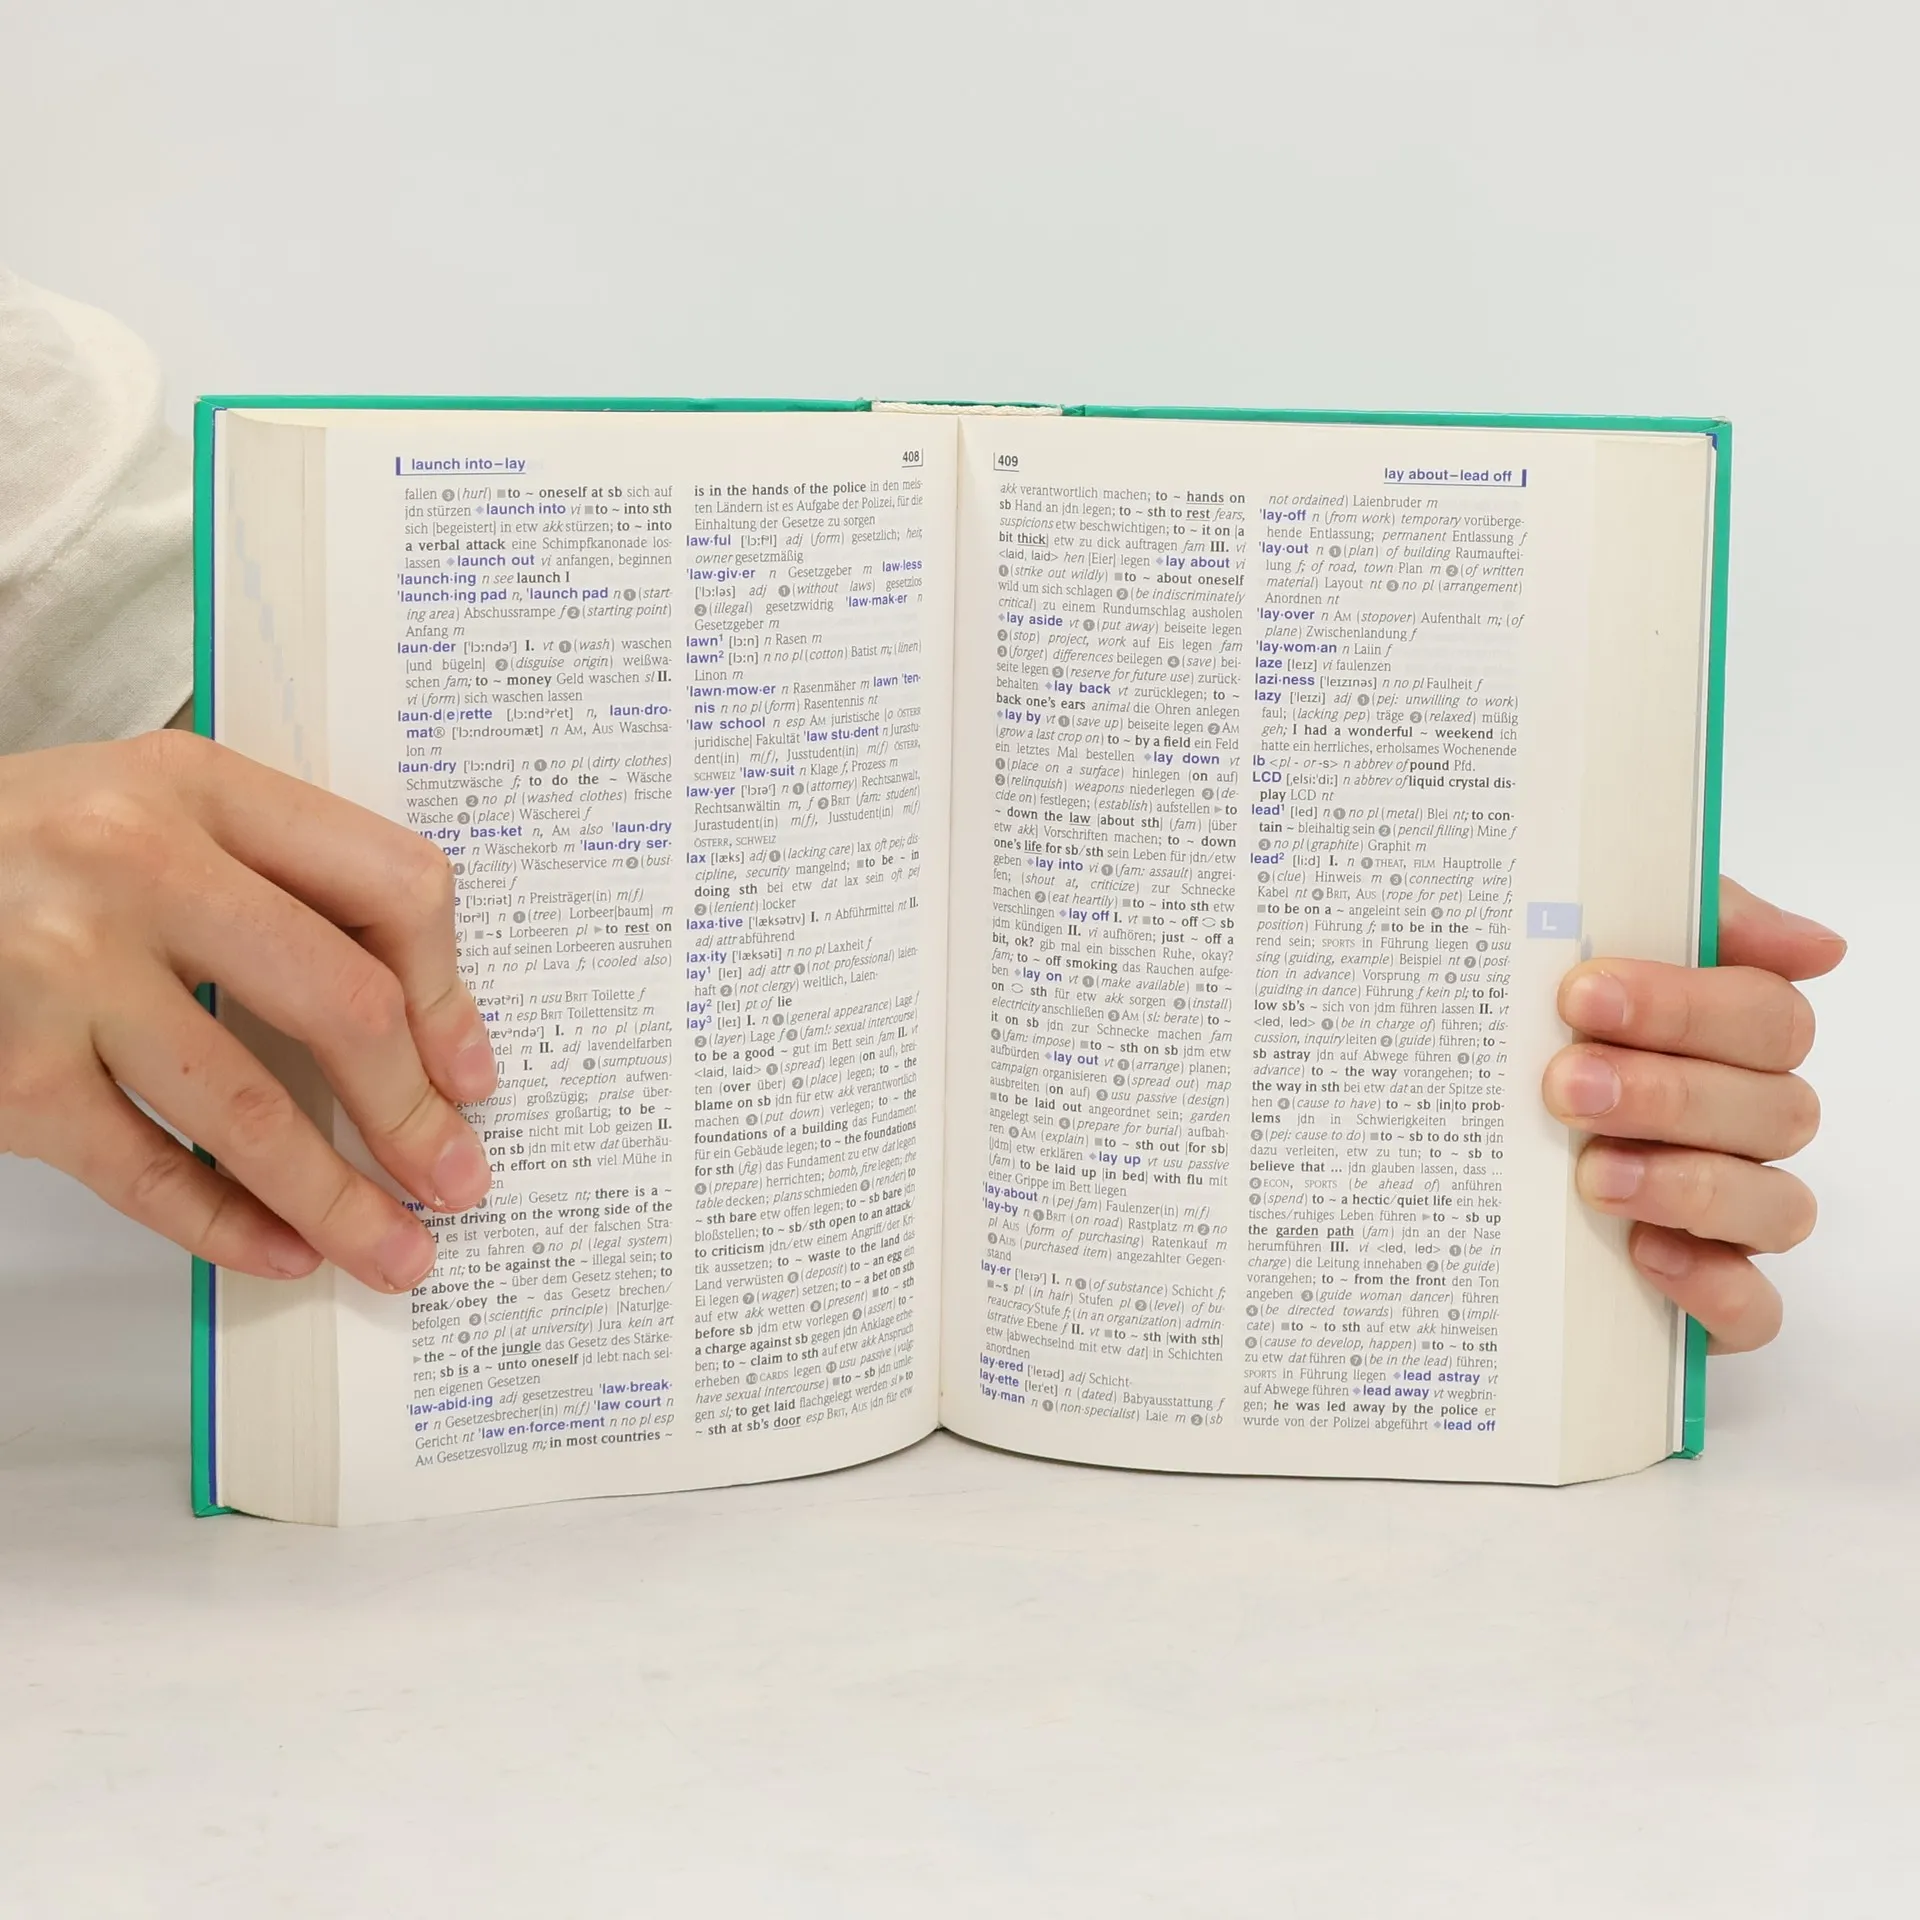 launch into–lay
408
fallen ❸ (hurl) ■to ~ oneself at sb sich auf
jdn stürzen ◆launch into vi ■to ~ into sth
sich [begeistert] in etw akk stürzen; to ~ into
a verbal attack eine Schimpfkanonade los-
lassen ◆launch out vi anfangen, beginnen
'launch·ing n see launch I
'launch·ing pad n, 'launch pad n ❶ (start-
ing area) Abschussrampe f ❷ (starting point)
Anfang m
laun·der ['lɔ:ndəʳ] I. vt ❶ (wash) waschen
[und bügeln] ❷ (disguise origin) weißwa-
schen fam; to ~ money Geld waschen sl II.
vi (form) sich waschen lassen
laun·d(e)rette [,lɔ:ndᵊr'et] n, laun·dro-
mat® ['lɔ:ndroʊmæt] n AM, AUS Waschsa-
lon m
laun·dry ['lɔ:ndri] n ❶ no pl (dirty clothes)
Schmutzwäsche f; to do the ~ Wäsche
waschen ❷ no pl (washed clothes) frische
Wäsche ❸ (place) Wäscherei f
n·dry bas·ket n, AM also 'laun·dry
per n Wäschekorb m 'laun·dry ser-
❶ (facility) Wäscheservice m ❷ (busi-
äscherei f
e ['lɔ:riət] n Preisträger(in) m(f)
'lɒrᵊl] n ❶ (tree) Lorbeer[baum] m
g) ■~s Lorbeeren pl ▶to rest on
s sich auf seinen Lorbeeren ausruhen
:və] n no pl Lava f; (cooled also)
in nt
lævətᵊri] n usu BRIT Toilette f
eat n esp BRIT Toilettensitz m
lævᵊndəʳ] I. n no pl (plant,
del m II. adj lavendelfarben
ʃ] I. adj ❶ (sumptuous)
banquet, reception aufwen-
generous) großzügig; praise über-
ich; promises großartig; to be ~
praise nicht mit Lob geizen II.
on sb jdn mit etw dat überhäu-
ch effort on sth viel Mühe in
en
law (rule) Gesetz nt; there is a ~
ainst driving on the wrong side of the
d es ist verboten, auf der falschen Stra-
eite zu fahren ❷ no pl (legal system)
cht nt; to be against the ~ illegal sein; to
be above the ~ über dem Gesetz stehen; to
break/obey the ~ das Gesetz brechen/
befolgen ❸ (scientific principle) [Natur]ge-
setz nt ❹ no pl (at university) Jura kein art
▶the ~ of the jungle das Gesetz des Stärke-
ren; sb is a ~ unto oneself jd lebt nach sei-
nen eigenen Gesetzen
'law-abid·ing adj gesetzestreu 'law·break-
er n Gesetzesbrecher(in) m(f) 'law court n
Gericht nt 'law en·force·ment n no pl esp
AM Gesetzesvollzug m; in most countries ~
is in the hands of the police in den meis-
ten Ländern ist es Aufgabe der Polizei, für die
Einhaltung der Gesetze zu sorgen
law·ful ['lɔ:fᵊl] adj (form) gesetzlich; heir,
owner gesetzmäßig
'law·giv·er n Gesetzgeber m law·less
['lɔ:ləs] adj ❶ (without laws) gesetzlos
❷ (illegal) gesetzwidrig 'law·mak·er n
Gesetzgeber m
lawn¹ [lɔ:n] n Rasen m
lawn² [lɔ:n] n no pl (cotton) Batist m; (linen)
Linon m
'lawn·mow·er n Rasenmäher m lawn 'ten-
nis n no pl (form) Rasentennis nt
'law school n esp AM juristische [o ÖSTERR
juridische] Fakultät 'law stu·dent n Jurastu-
dent(in) m(f), Jusstudent(in) m(f) ÖSTERR,
SCHWEIZ 'law·suit n Klage f, Prozess m
law·yer ['lɔɪəʳ] n ❶ (attorney) Rechtsanwalt,
Rechtsanwältin m, f ❷ BRIT (fam: student)
Jurastudent(in) m(f), Jusstudent(in) m(f)
ÖSTERR, SCHWEIZ
lax [læks] adj ❶ (lacking care) lax oft pej; dis-
cipline, security mangelnd; ■to be ~ in
doing sth bei etw dat lax sein oft pej
❷ (lenient) locker
laxa·tive ['læksətɪv] I. n Abführmittel nt II.
adj attr abführend
lax·ity ['læksəti] n no pl Laxheit f
lay¹ [leɪ] adj attr ❶ (not professional) laien-
haft ❷ (not clergy) weltlich, Laien-
lay² [leɪ] pt of lie
lay³ [leɪ] I. n ❶ (general appearance) Lage f
❷ (layer) Lage f ❸ (fam!: sexual intercourse)
to be a good ~ gut im Bett sein fam II. vt
<laid, laid> ❶ (spread) legen (on auf), brei-
ten (over über) ❷ (place) legen; to ~ the
blame on sb jdn für etw akk verantwortlich
machen ❸ (put down) verlegen; to ~ the
foundations of a building das Fundament
für ein Gebäude legen; to ~ the foundations
for sth (fig) das Fundament zu etw dat legen
❹ (prepare) herrichten; bomb, fire legen; the
table decken; plans schmieden ❺ (render) to
~ sth bare etw offen legen; to ~ sb bare jdn
bloßstellen; to ~ sb/sth open to an attack/
to criticism jdn/etw einem Angriff/der Kri-
tik aussetzen; to ~ waste to the land das
Land verwüsten ❻ (deposit) to ~ an egg ein
Ei legen ❼ (wager) setzen; to ~ a bet on sth
auf etw akk wetten ❽ (present) ■to ~ sth
before sb jdm etw vorlegen ❾ (assert) to ~
a charge against sb gegen jdn Anklage erhe-
ben; to ~ claim to sth auf etw akk Anspruch
erheben ❿ CARDS legen ⓫ usu passive (vulg:
have sexual intercourse) ■to ~ sb jdn umle-
gen sl; to get laid flachgelegt werden sl ▶to
~ sth at sb's door esp BRIT, AUS jdn für etw
409
lay about–lead off
akk verantwortlich machen; to ~ hands on
sb Hand an jdn legen; to ~ sth to rest fears,
suspicions etw beschwichtigen; to ~ it on [a
bit thick] etw zu dick auftragen fam III. vi
<laid, laid> hen [Eier] legen ◆lay about vi
❶ (strike out wildly) ■to ~ about oneself
wild um sich schlagen ❷ (be indiscriminately
critical) zu einem Rundumschlag ausholen
◆lay aside vt ❶ (put away) beiseite legen
❷ (stop) project, work auf Eis legen fam
❸ (forget) differences beilegen ❹ (save) bei-
seite legen ❺ (reserve for future use) zurück-
behalten ◆lay back vt zurücklegen; to ~
back one's ears animal die Ohren anlegen
◆lay by vt ❶ (save up) beiseite legen ❷ AM
(grow a last crop on) to ~ by a field ein Feld
ein letztes Mal bestellen ◆lay down vt
❶ (place on a surface) hinlegen (on auf)
❷ (relinquish) weapons niederlegen ❸ (de-
cide on) festlegen; (establish) aufstellen ▶to
~ down the law [about sth] (fam) [über
etw akk] Vorschriften machen; to ~ down
one's life for sb/sth sein Leben für jdn/etw
geben ◆lay into vi ❶ (fam: assault) angrei-
fen; (shout at, criticize) zur Schnecke
machen ❷ (eat heartily) ■to ~ into sth etw
verschlingen ◆lay off I. vt ■to ~ off ⟲ sb
jdm kündigen II. vi aufhören; just ~ off a
bit, ok? gib mal ein bisschen Ruhe, okay?
fam; to ~ off smoking das Rauchen aufge-
ben ◆lay on vt ❶ (make available) ■to ~
on ⟲ sth für etw akk sorgen ❷ (install)
electricity anschließen ❸ AM (sl: berate) to ~
it on sb jdn zur Schnecke machen fam
❹ (fam: impose) ■to ~ sth on sb jdm etw
aufbürden ◆lay out vt ❶ (arrange) planen;
campaign organisieren ❷ (spread out) map
ausbreiten (on auf) ❸ usu passive (design)
■to be laid out angeordnet sein; garden
angelegt sein ❹ (prepare for burial) aufbah-
ren ❺ AM (explain) ■to ~ sth out [for sb]
[jdm] etw erklären ◆lay up vt usu passive
(fam) to be laid up [in bed] with flu mit
einer Grippe im Bett liegen
'lay·about n (pej fam) Faulenzer(in) m(f)
'lay-by n ❶ BRIT (on road) Rastplatz m ❷ no
pl AUS (form of purchasing) Ratenkauf m
❸ AUS (purchased item) angezahlter Gegen-
stand
lay·er ['leɪəʳ] I. n ❶ (of substance) Schicht f;
■~s pl (in hair) Stufen pl ❷ (level) of bu-
reaucracy Stufe f; (in an organization) admin-
istrative Ebene f II. vt ■to ~ sth [with sth]
etw [abwechselnd mit etw dat] in Schichten
anordnen
lay·ered ['leɪəd] adj Schicht-
lay·ette [leɪ'et] n (dated) Babyausstattung f
'lay·man n ❶ (non-specialist) Laie m ❷ (sb
not ordained) Laienbruder m
'lay-off n (from work) temporary vorüberge-
hende Entlassung; permanent Entlassung f
'lay·out n ❶ (plan) of building Raumauftei-
lung f; of road, town Plan m ❷ (of written
material) Layout nt ❸ no pl (arrangement)
Anordnen nt
'lay·over n AM (stopover) Aufenthalt m; (of
plane) Zwischenlandung f
'lay·wom·an n Laiin f
laze [leɪz] vi faulenzen
lazi·ness ['leɪzɪnəs] n no pl Faulheit f
lazy ['leɪzi] adj ❶ (pej: unwilling to work)
faul; (lacking pep) träge ❷ (relaxed) müßig
geh; I had a wonderful ~ weekend ich
hatte ein herrliches, erholsames Wochenende
lb <pl - or -s> n abbrev of pound Pfd.
LCD [,elsi:'di:] n abbrev of liquid crystal dis-
play LCD nt
lead¹ [led] n ❶ no pl (metal) Blei nt; to con-
tain ~ bleihaltig sein ❷ (pencil filling) Mine f
❸ no pl (graphite) Graphit m
lead² [li:d] I. n ❶ THEAT, FILM Hauptrolle f
❷ (clue) Hinweis m ❸ (connecting wire)
Kabel nt ❹ BRIT, AUS (rope for pet) Leine f;
■to be on a ~ angeleint sein ❺ no pl (front
position) Führung f; ■to be in the ~ füh-
rend sein; SPORTS in Führung liegen ❻ usu
sing (guiding, example) Beispiel nt ❼ (posi-
tion in advance) Vorsprung m ❽ usu sing
(guiding in dance) Führung f kein pl; to fol-
low sb's ~ sich von jdm führen lassen II. vt
<led, led> ❶ (be in charge of) führen; dis-
cussion, inquiry leiten ❷ (guide) führen; to ~
sb astray jdn auf Abwege führen ❸ (go in
advance) to ~ the way vorangehen; to ~
the way in sth bei etw dat an der Spitze ste-
hen ❹ (cause to have) to ~ sb [in]to prob-
lems jdn in Schwierigkeiten bringen
❺ (pej: cause to do) ■to ~ sb to do sth jdn
dazu verleiten, etw zu tun; to ~ sb to
believe that ... jdn glauben lassen, dass ...
❻ ECON, SPORTS (be ahead of) anführen
❼ (spend) to ~ a hectic/quiet life ein hek-
tisches/ruhiges Leben führen ▶to ~ sb up
the garden path (fam) jdn an der Nase
herumführen III. vi <led, led> ❶ (be in
charge) die Leitung innehaben ❷ (be guide)
vorangehen; to ~ from the front den Ton
angeben ❸ (guide woman dancer) führen
❹ (be directed towards) führen ❺ (impli-
cate) ■to ~ to sth auf etw akk hinweisen
❻ (cause to develop, happen) ■to ~ to sth
zu etw dat führen ❼ (be in the lead) führen;
SPORTS in Führung liegen ◆lead astray vt
auf Abwege führen ◆lead away vt wegbrin-
gen; he was led away by the police er
wurde von der Polizei abgeführt ◆lead off
L